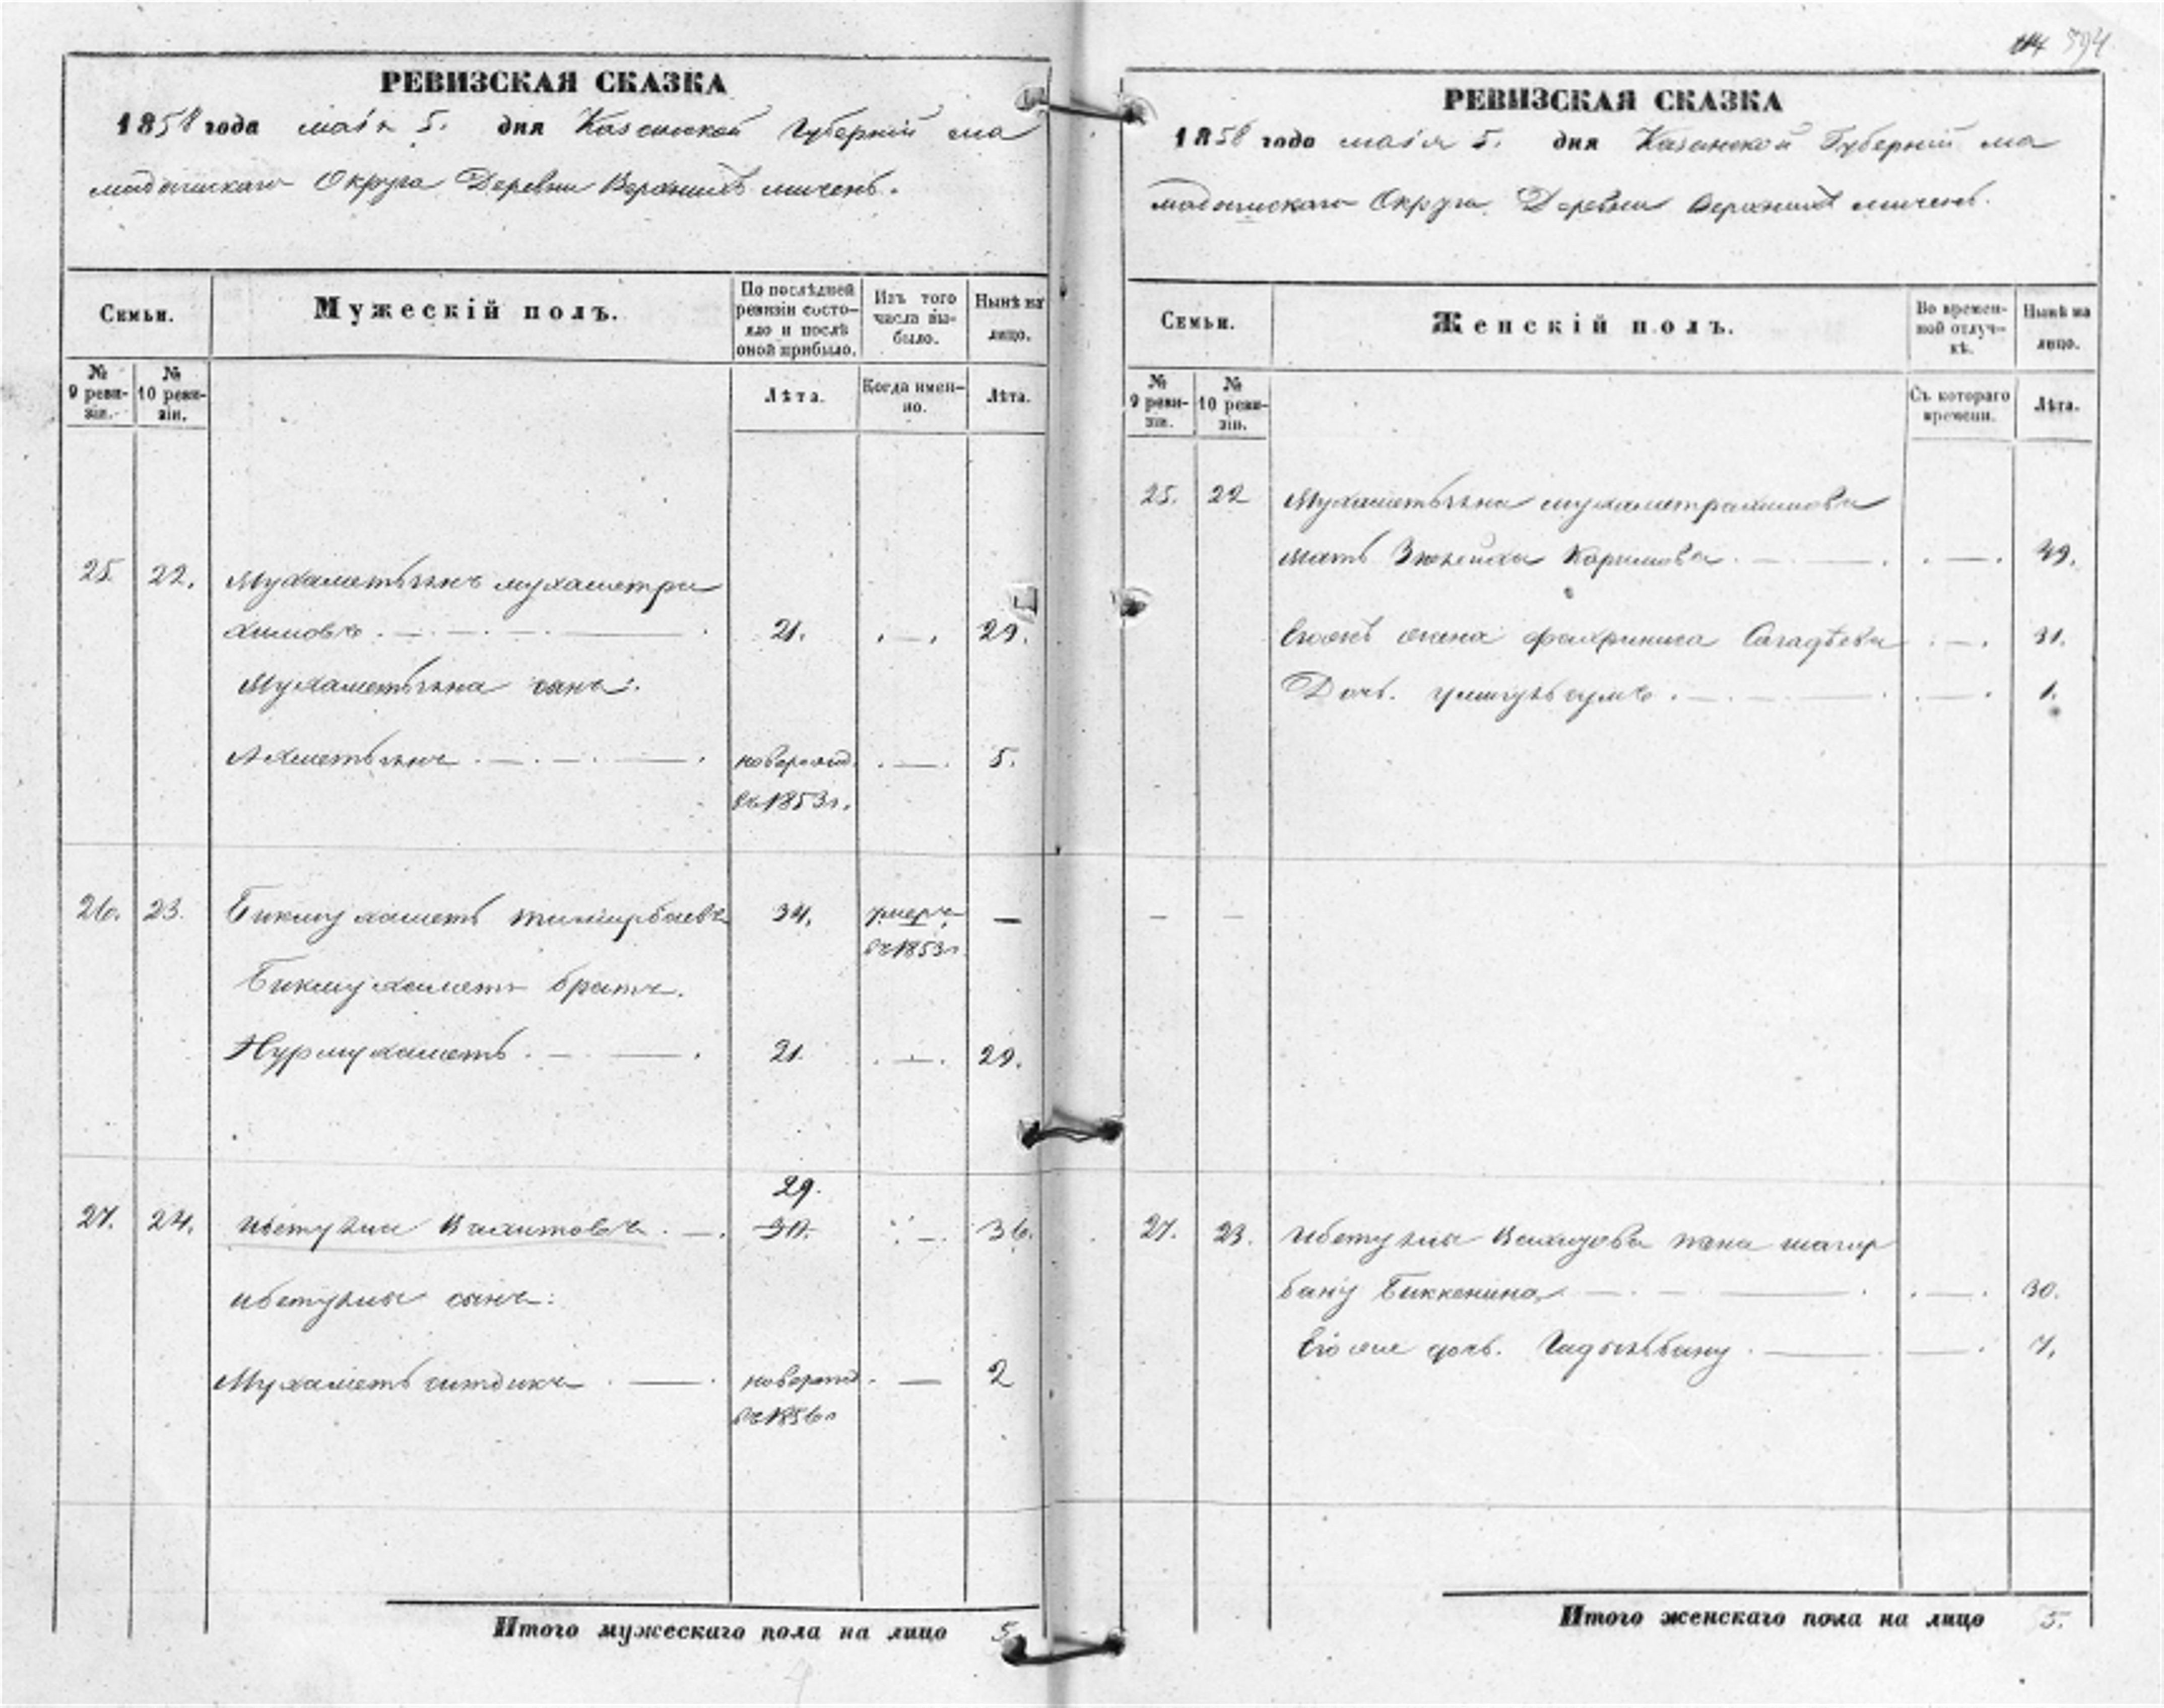 394
РЕВИЗСКАЯ СКАЗКА
1858 года маія 5. дня Казанской Губерніи ма
мадышскаго Округа Деревни Верхнихъ
Семьи.
Мужескій полъ.
По послѣдней ревизіи состояло и послѣ оной прибыло.
Изъ того числа выбыло.
Нынѣ на лицо.
№ 9 ревизіи.
№ 10 ревизіи.
Лѣта.
Когда именно.
Лѣта.
25 22. Мухаметьянъ мухаметра
химовъ 21. 29.
Мухаметьяна сынъ:
Ахметьянъ новорожд. 5.
въ 1853 г.
26. 23. Бикмухаметь тимирбаевъ 34. умеръ —
въ 1853 г
Бикмухаметь братъ.
Нурмухаметь 21. 29.
29.
27. 24. Ибетулла Вахитовъ 36.
ибетуллы сынъ:
Мухаметь ситдикъ новорожд. — 2
въ 1856 г
Итого мужескаго пола на лицо 5
РЕВИЗСКАЯ СКАЗКА
1858 года маія 5. дня Казанской Губерніи ма
мадышскаго Округа Деревни Верхнихъ
Семьи.
Женскій полъ.
Во временной отлучкѣ.
Нынѣ на лицо.
№ 9 ревизіи.
№ 10 ревизіи.
Съ котораго времени.
Лѣта.
25. 22 Мухаметьяна мухаметрахимова
мать Зюлейха Каримова 49.
Егожъ жена фахриниса Сагадѣева 31.
Дочь. умигульсумъ 1.
— —
27. 23. Ибетуллы Вахидова жена шагир
бану Биккенина 30.
Его же дочь. Гадыльбану 7.
Итого женскаго пола на лицо 5.